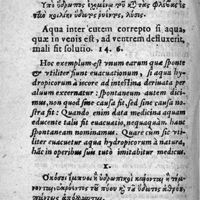 Ὑπὸ ὕδρωπος ἐχομένῳ τοῦ κατὰ τὰς φλέβας ἐς
τὴν κοιλίην ὕδατος ῥυέντος, λύσις.
Aqua inter cutem correpto si aqua,
quæ in venis est, ad ventrem defluxerit,
mali fit solutio. 14. 6.
Hoc exemplum est vnum earum quæ sponte
& vtiliter fiunt euacuationum, si aqua hydropicorum à iecore ad intestina deriuata per
aluum excernatur: spontaneum autem dicimus, non quod sine causa fit, sed sine causa nostra fit: Quando enim, nulla data medicina aquam
educente tale fit euacuatio, nequaquam, hanc
spontaneam nominamus. Quare cum sic vtiliter euacuetur aqua hydropicorum à natura,
hac in operibus suis tutò imitabitur medicus.
1.
Ὁκόσοι ἔμπυοι ἢ ὑδρωπικοὶ καίονται ἢ τέμνονται,
τοῦ πύου ἢ τοῦ ὕδατος ἀθρόου,